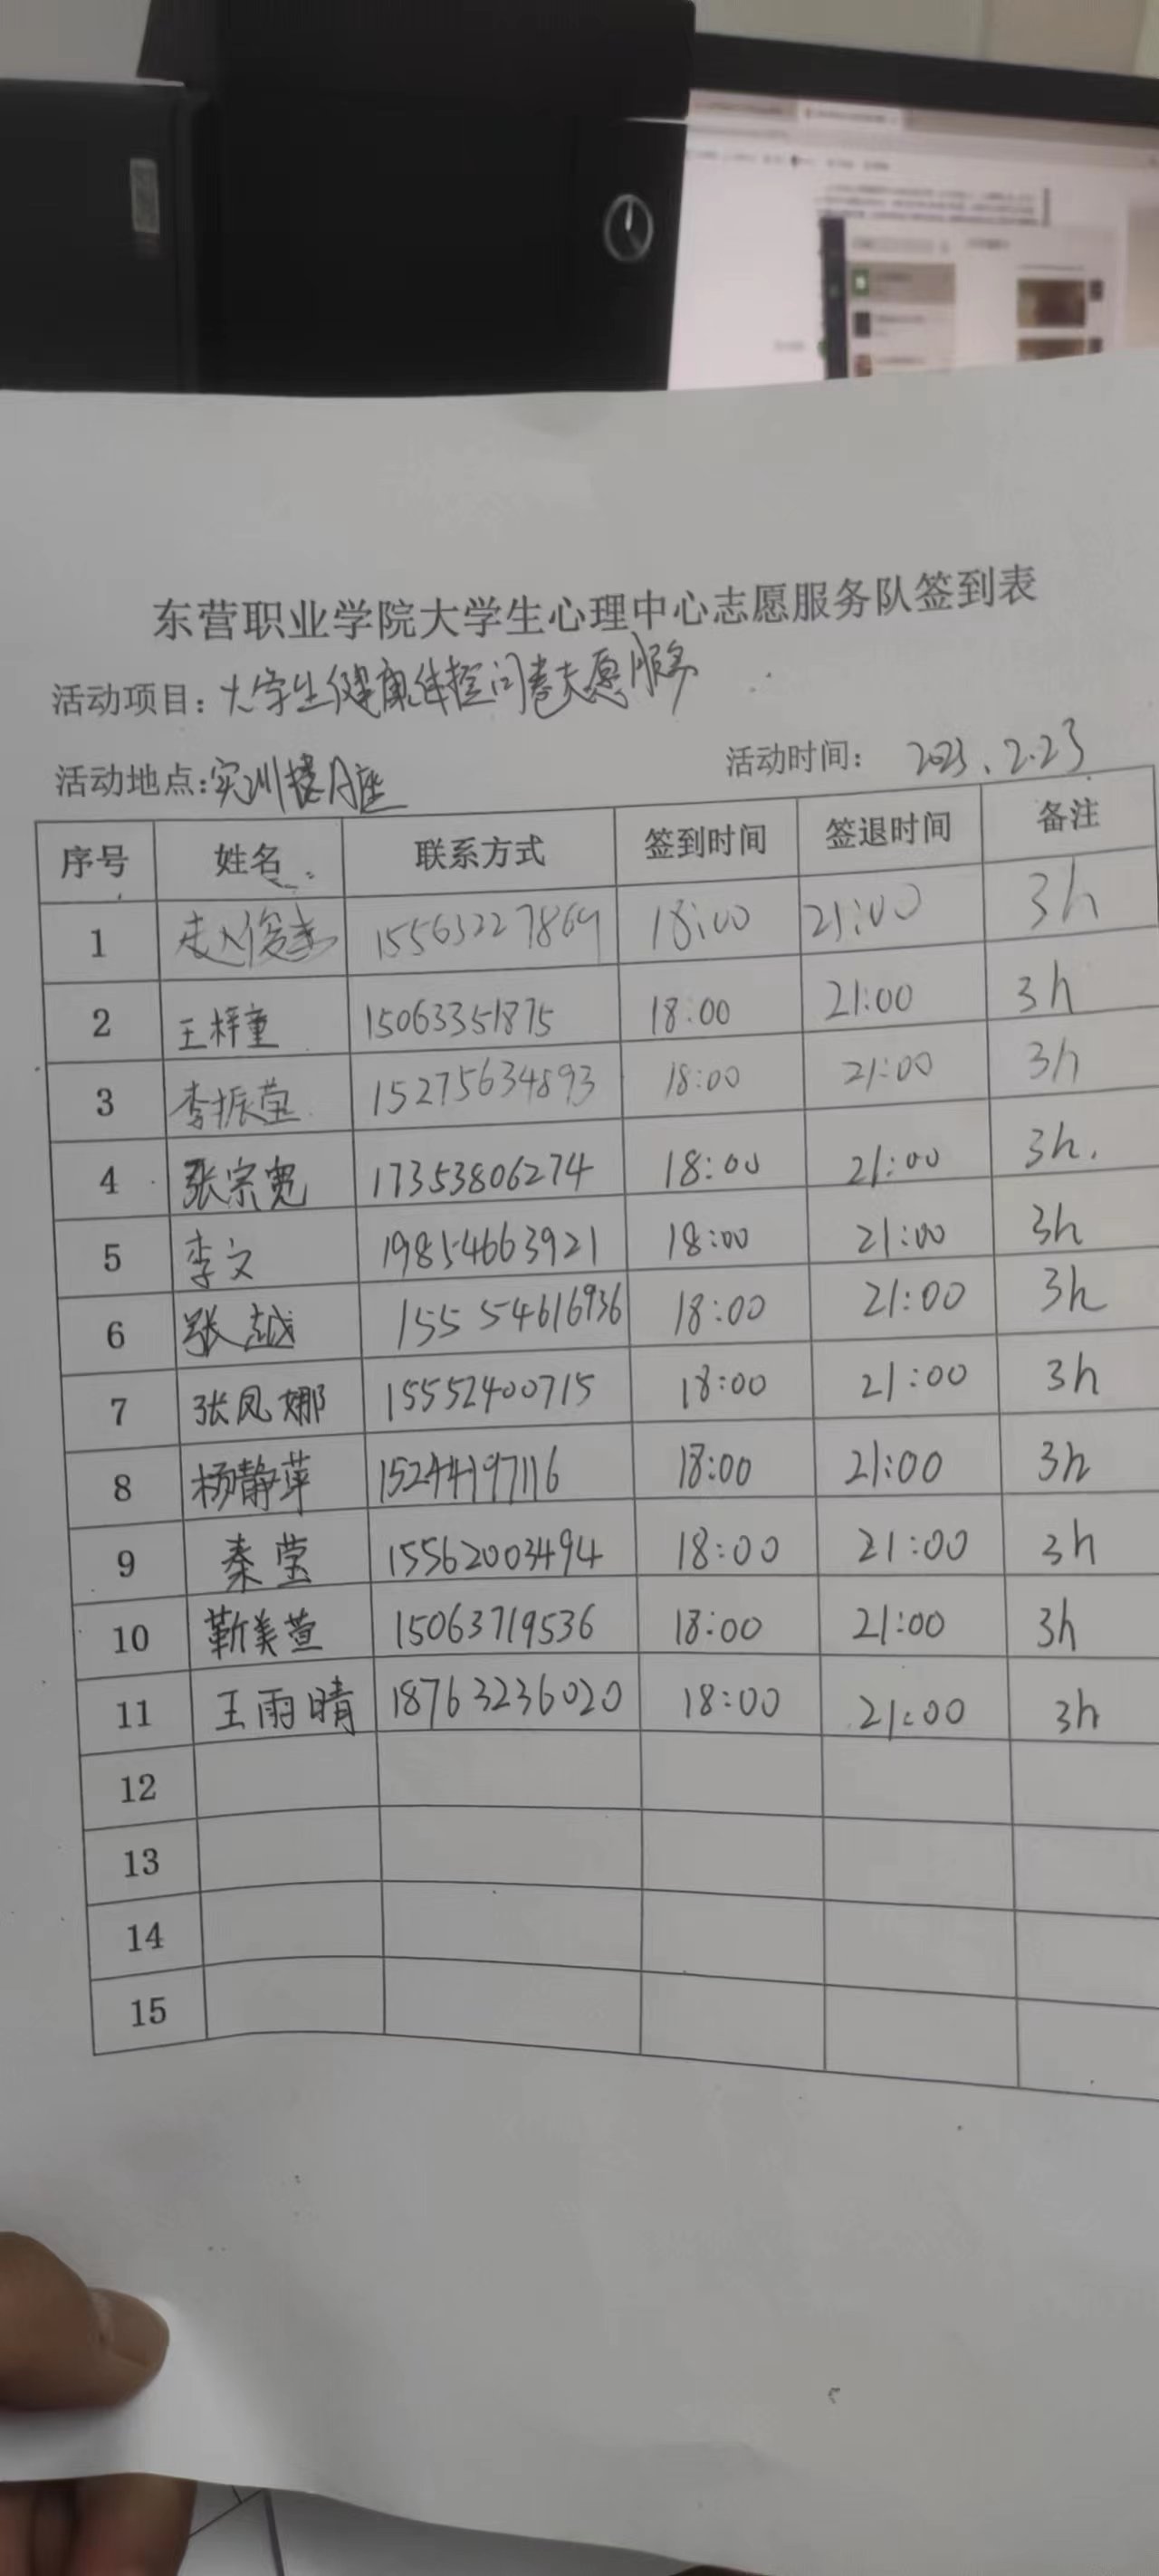 东营职业学院大学生心理中心志愿服务队签到表
活动项目：大学生健康体检问卷志愿服务
活动地点：实训楼A座 活动时间： 2023.2.23
序号 姓名 联系方式 签到时间 签退时间 备注
1 赵俊 15563227869 18:00 21:00 3h
2 王梓童 15063351875 18:00 21:00 3h
3 李振莹 15275634893 18:00 21:00 3h
4 张宗宽 17353806274 18:00 21:00 3h.
5 李文 19854663921 18:00 21:00 3h
6 张越 155 54616936 18:00 21:00 3h
7 张凤娜 15552400715 18:00 21:00 3h
8 杨静萍 15244197116 18:00 21:00 3h
9 秦莹 15562003494 18:00 21:00 3h
10 靳美萱 15063719536 18:00 21:00 3h
11 王雨晴 18763236020 18:00 21:00 3h
12
13
14
15